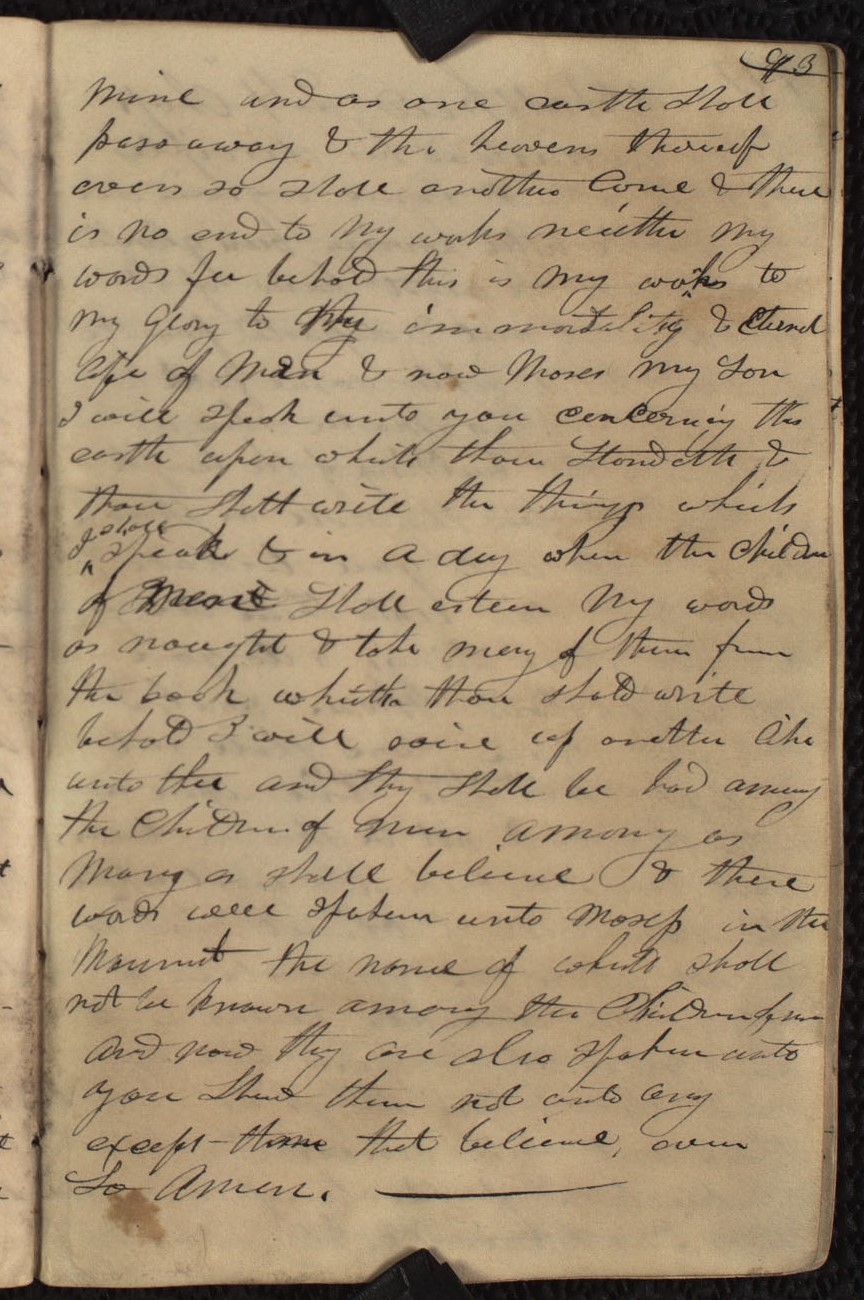 93
mine and as one earth shall
pass away & the heavens thereof
even so shall another Come & there
is no end to my works neither my
words for behold this is my works to
my Glory to the immortality & eternal
life of Man & now Moses my Son
I will speak unto you concerning this
earth upon which thou standeth &
thou shalt write the things which
I shall speak & in a day when the children
of men shall esteem my words
as naught & take many of them from
the book which thou shald write
behold I will raise up another like
unto thee and they shall be had among
the Children of men among as
many as shall believe & these
words were spoken unto Moses in the
Mount the name of which shall
not be known among the Children of men
and now they are also spoken unto
you Shew them not unto any
except them that believe, even
So Amen.